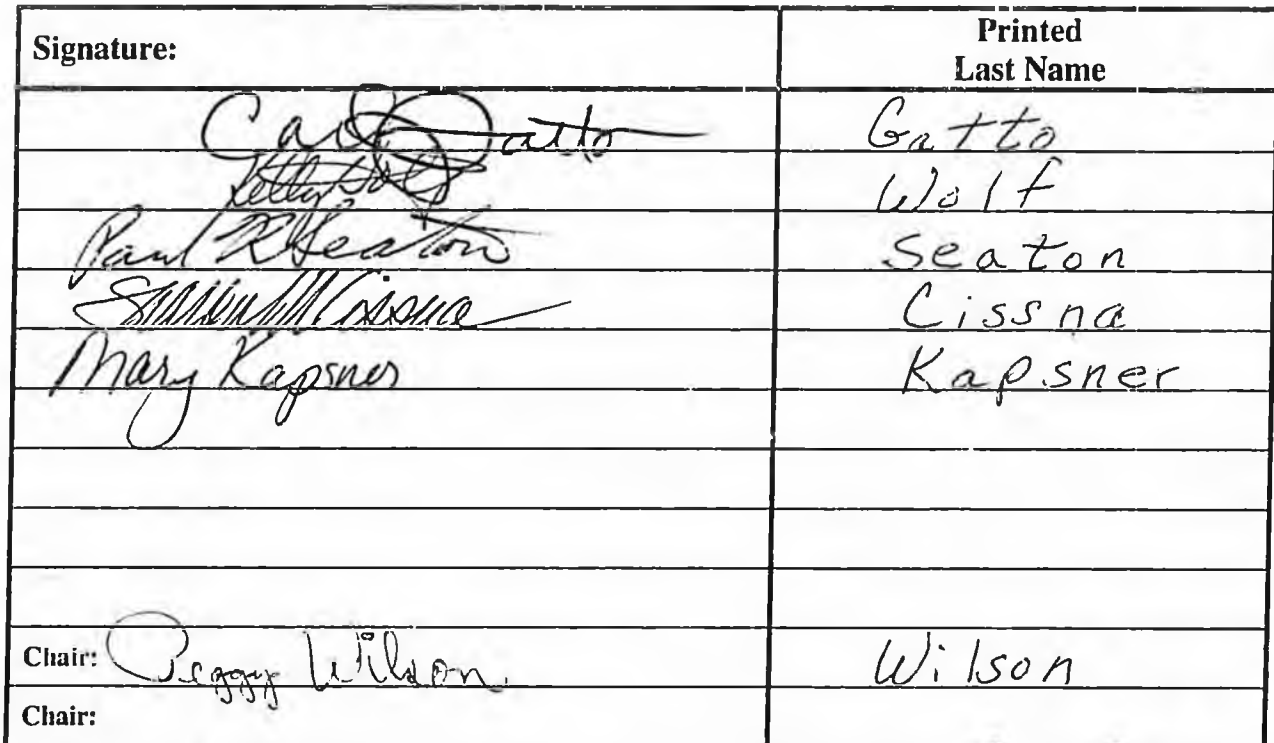 Signature: Printed Last Name
Carl Gatto Gatto
Kelly Wolf Wolf
Paul K Seaton Seaton
Cissna Cissna
Mary Kapsner Kapsner
Chair: Peggy Wilson Wilson
Chair: